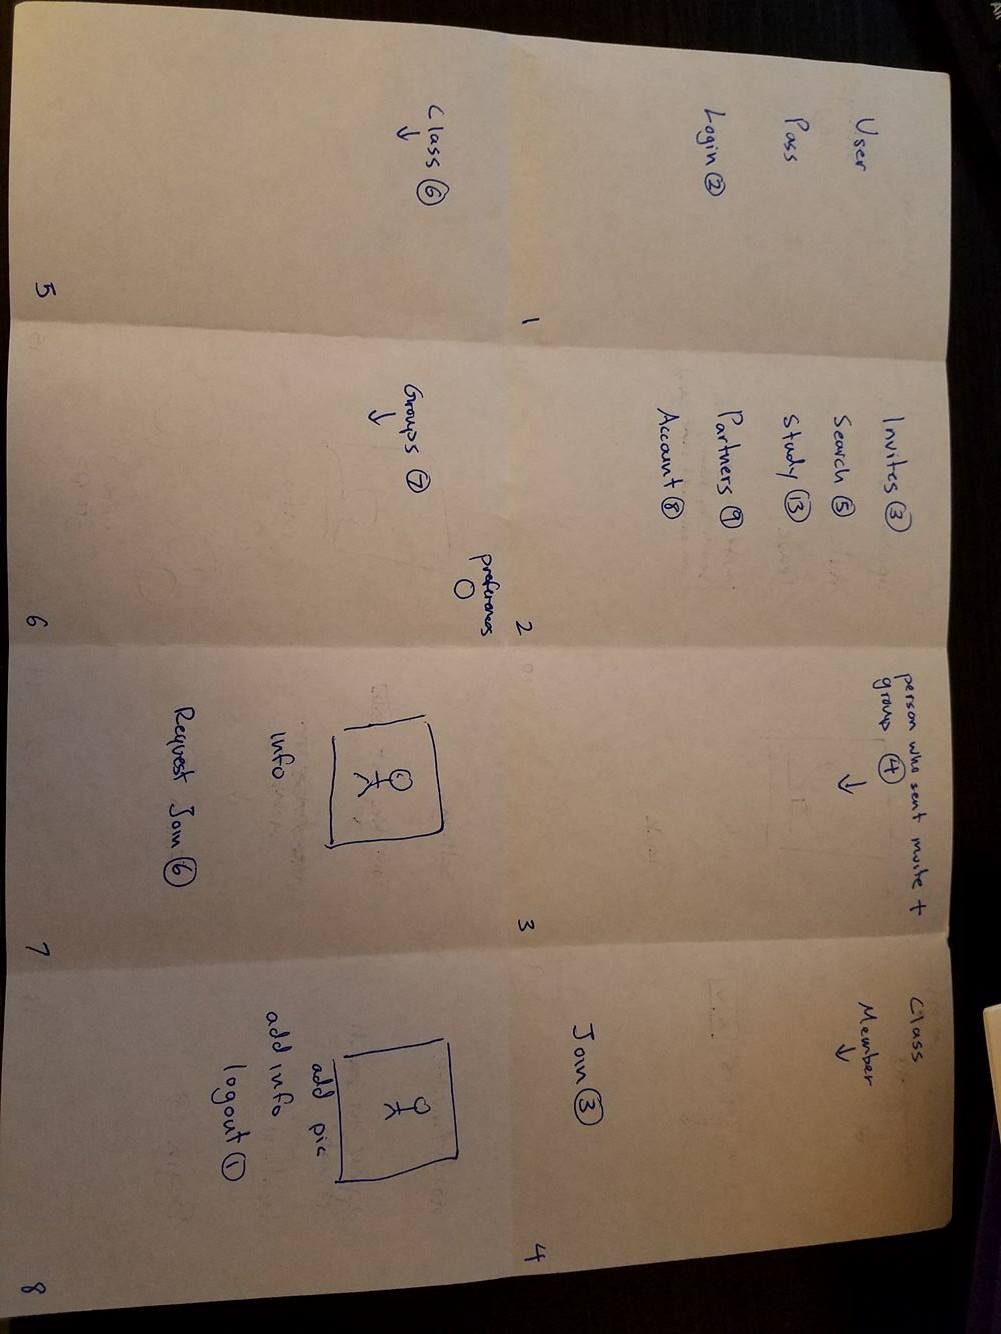 User
Pass
Login ②
1
Invites ③
Search ⑤
Study ⑬
Partners ⑨
Account ⑧
2
person who sent invite +
group ④
↓
3
Class
Member
↓
Join ③
4
Class ⑥
↓
5
preferences
○
Groups ⑦
↓
6
info
Request Join ⑥
7
add pic
add info
logout ①
8